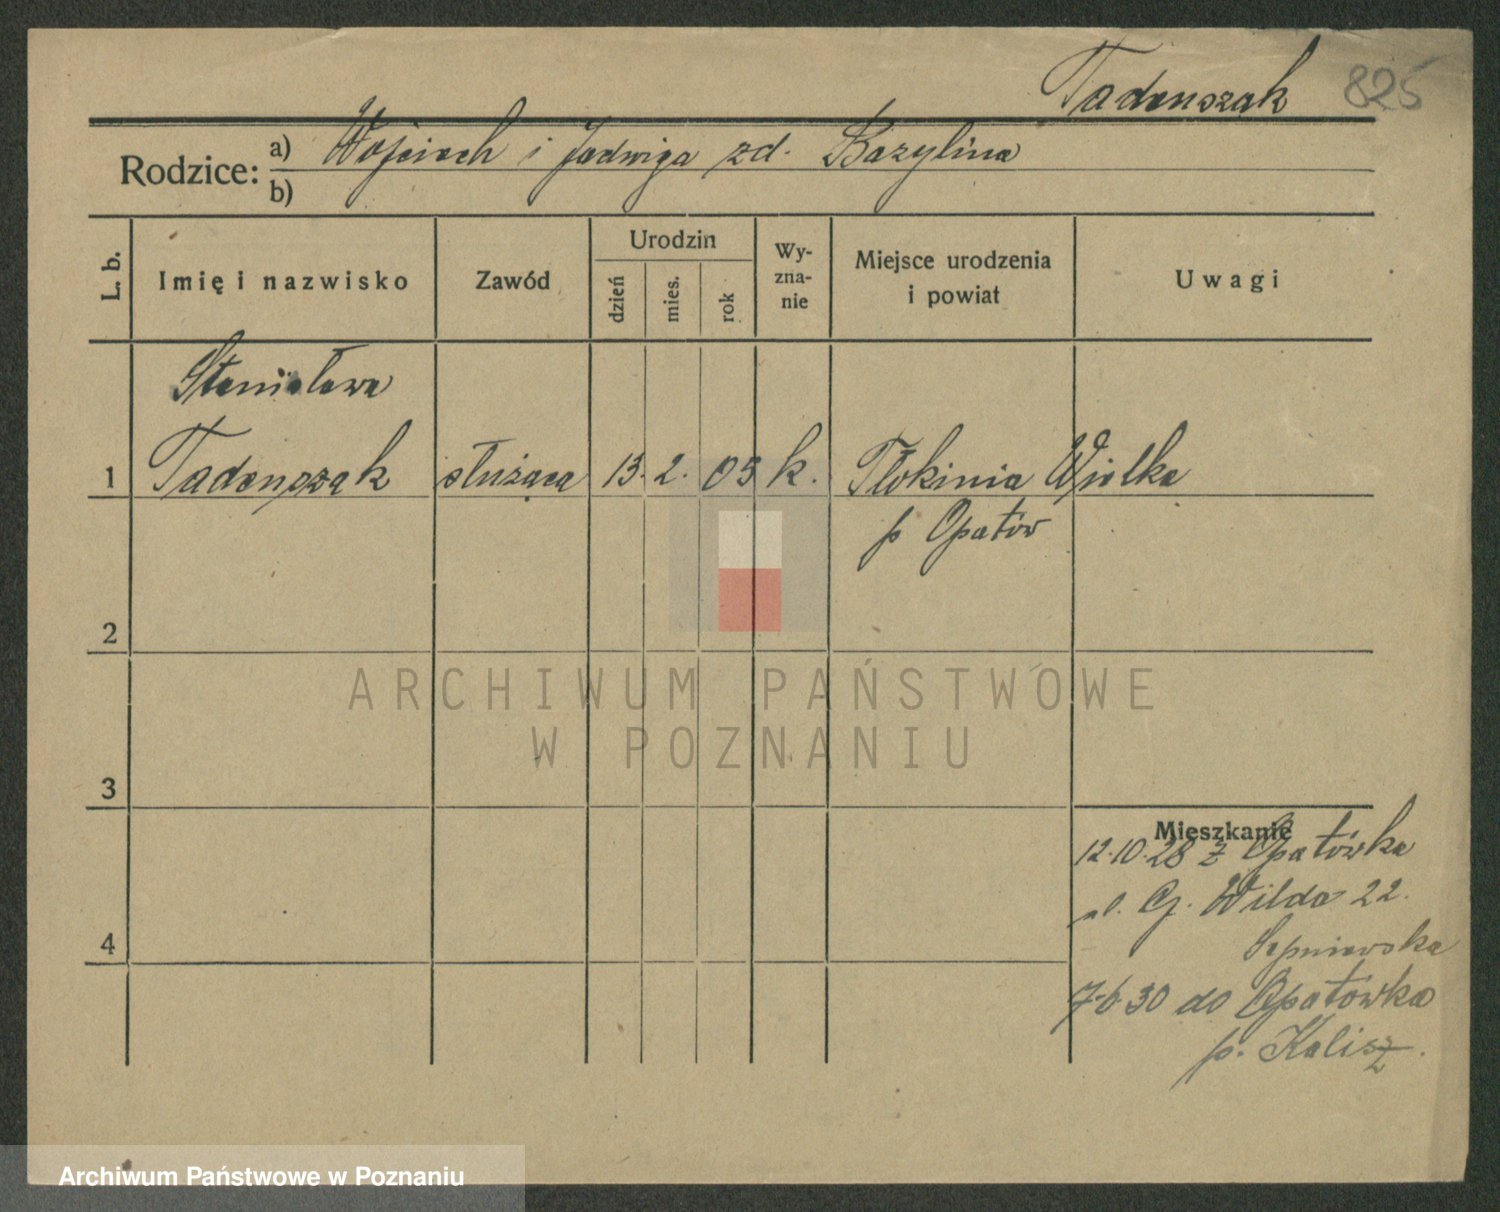 Tadenszak 825
Rodzice: a) Wojciech i Jadwiga zd. Bazylina
b)
L. b.
Imię i nazwisko
Zawód
Urodzin
dzień
mies.
rok
Wy-
zna-
nie
Miejsce urodzenia
i powiat
Uwagi
Stanisława
1 Tadenszak służąca 13. 2. 05 k. Tłokinia Wielka
p Opatów
2
3
4
ARCHIWUM PAŃSTWOWE
W POZNANIU
Mieszkanie
12.10.28 z Opatówka
ul. G. Wilda 22.
7.6.30 do Opatówka
p. Kalisz.
Archiwum Państwowe w Poznaniu